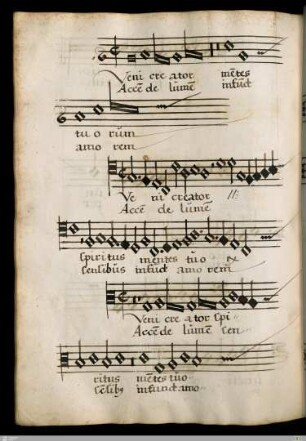 Veni cre ator mētes
Accē de lumē infūd
tu o rum
amo rem
Ve ni creator
Accē de lumē
spiritus mentes tuo
sensibus infud amo rem
Veni cre ator spi
Accē de lumē sen
ritus mētes tuo
sēsib infund amo